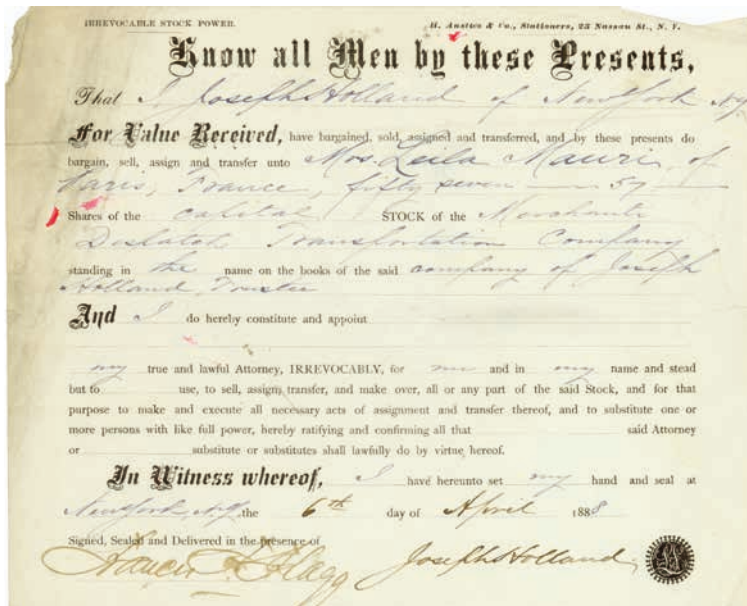 IRREVOCABLE STOCK POWER. H. Austies & Co., Stationers, 23 Nassau St., N. Y.
Know all Men by these Presents,
That I, Joseph Holland of New York NY
For Value Received, have bargained, sold, assigned and transferred, and by these presents do
bargain, sell, assign and transfer unto Mrs. Leila Mauri, of
Paris, France, fifty seven — 57 —
Shares of the capital STOCK of the Merchants
Despatch Transportation Company
standing in the name on the books of the said company of Joseph
Holland, Trustee
And I do hereby constitute and appoint
my true and lawful Attorney, IRREVOCABLY, for me and in my name and stead
but to use, to sell, assign, transfer, and make over, all or any part of the said Stock, and for that
purpose to make and execute all necessary acts of assignment and transfer thereof, and to substitute one or
more persons with like full power, hereby ratifying and confirming all that said Attorney
or substitute or substitutes shall lawfully do by virtue, hereof.
In Witness whereof, I have hereunto set my hand and seal at
New York, N.Y. the 6th day of April 1888
Signed, Sealed and Delivered in the presence of
Francis F. Flagg Joseph Holland